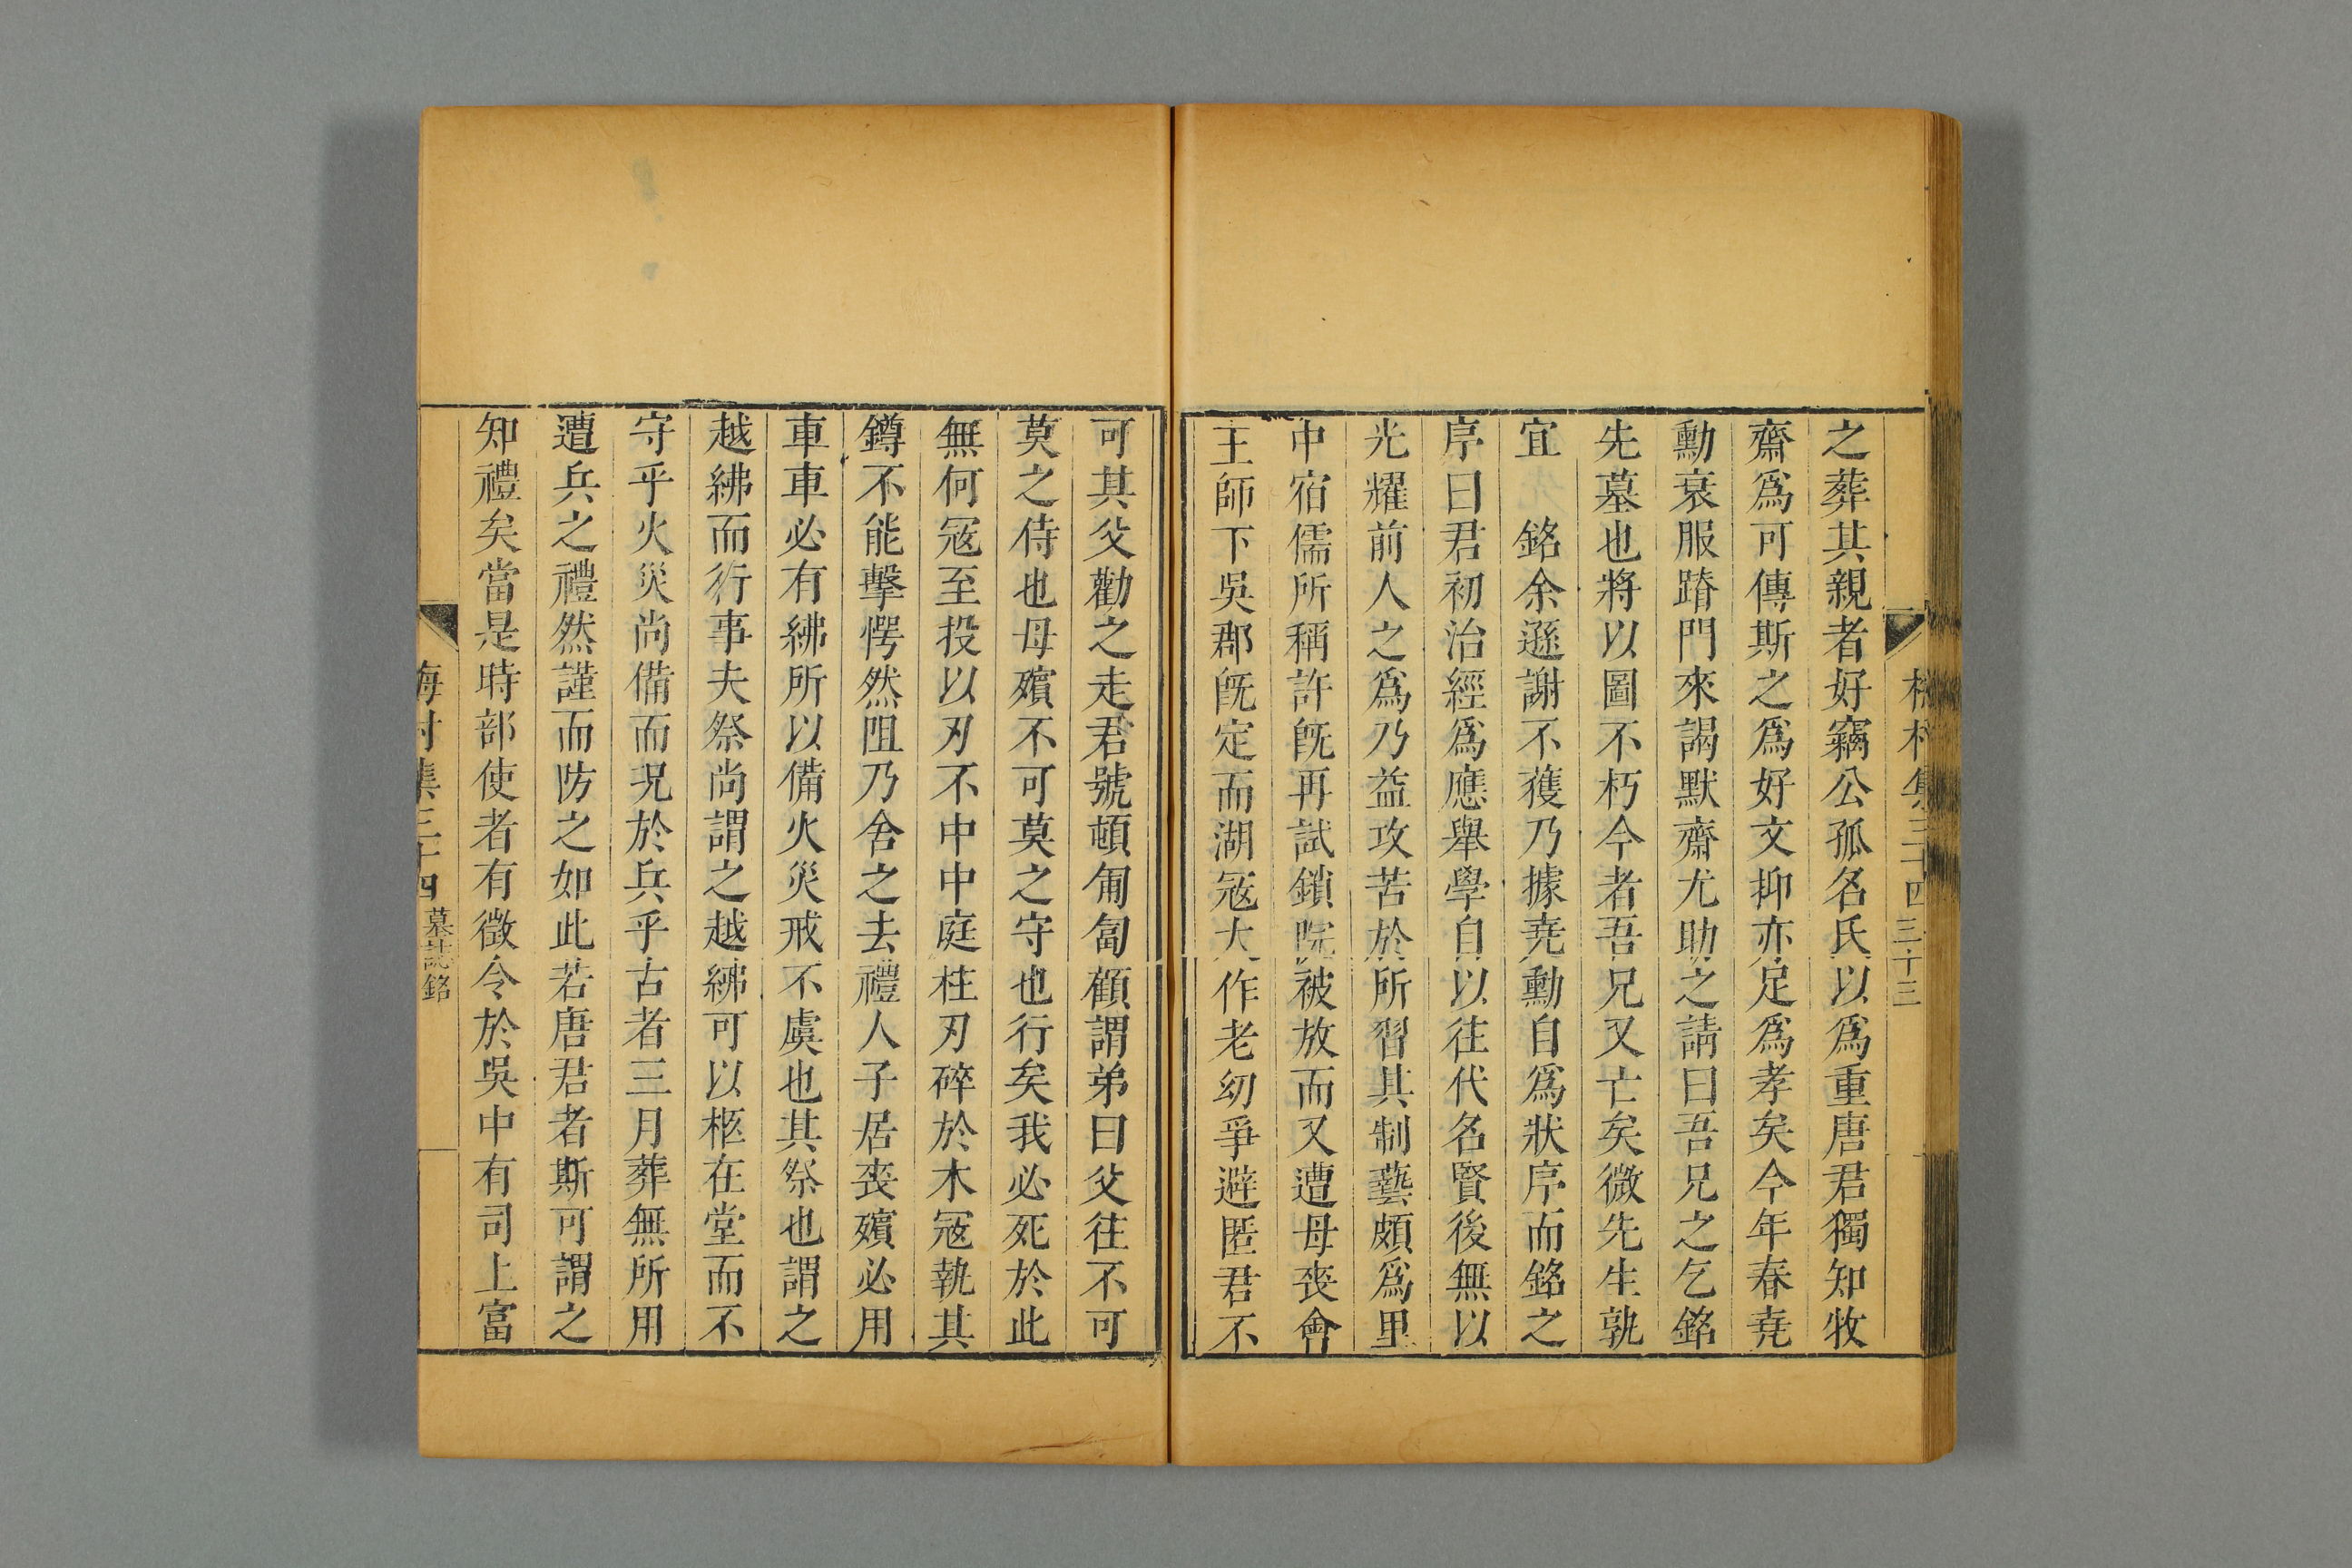 梅村集三十四 三十三
之葬其親者好竊公孤名氏以爲重唐君獨知牧
齋爲可傳斯之爲好文抑亦足爲孝矣今年春堯
勳衰服踳門來謁默齋尤助之請曰吾兄之乞銘
先墓也將以圖不朽今者吾兄又亡矣微先生孰
宜 銘余遜謝不獲乃據堯勳自爲狀序而銘之
序曰君初治經爲應舉學自以往代名賢後無以
光耀前人之爲乃益攻苦於所習其制藝頗爲里
中宿儒所稱許旣再試鎖院被放而又遭母喪會
王師下吳郡旣定而湖冦大作老幼爭避匿君不
可其父勸之走君號頓匍匐顧謂弟曰父往不可
莫之侍也母殯不可莫之守也行矣我必死於此
無何冦至投以刃不中中庭柱刃碎於木冦執其
鐏不能擊愕然咀乃舍之去禮人子居喪殯必用
車車必有紼所以備火災戒不虞也其祭也謂之
越紼而行事夫祭尚謂之越紼可以柩在堂而不
守乎火災尚備而況於兵乎古者三月葬無所用
遭兵之禮然謹而防之如此若唐君者斯可謂之
知禮矣當是時部使者有徵令於吳中有司上富
梅村集三十四 墓誌銘